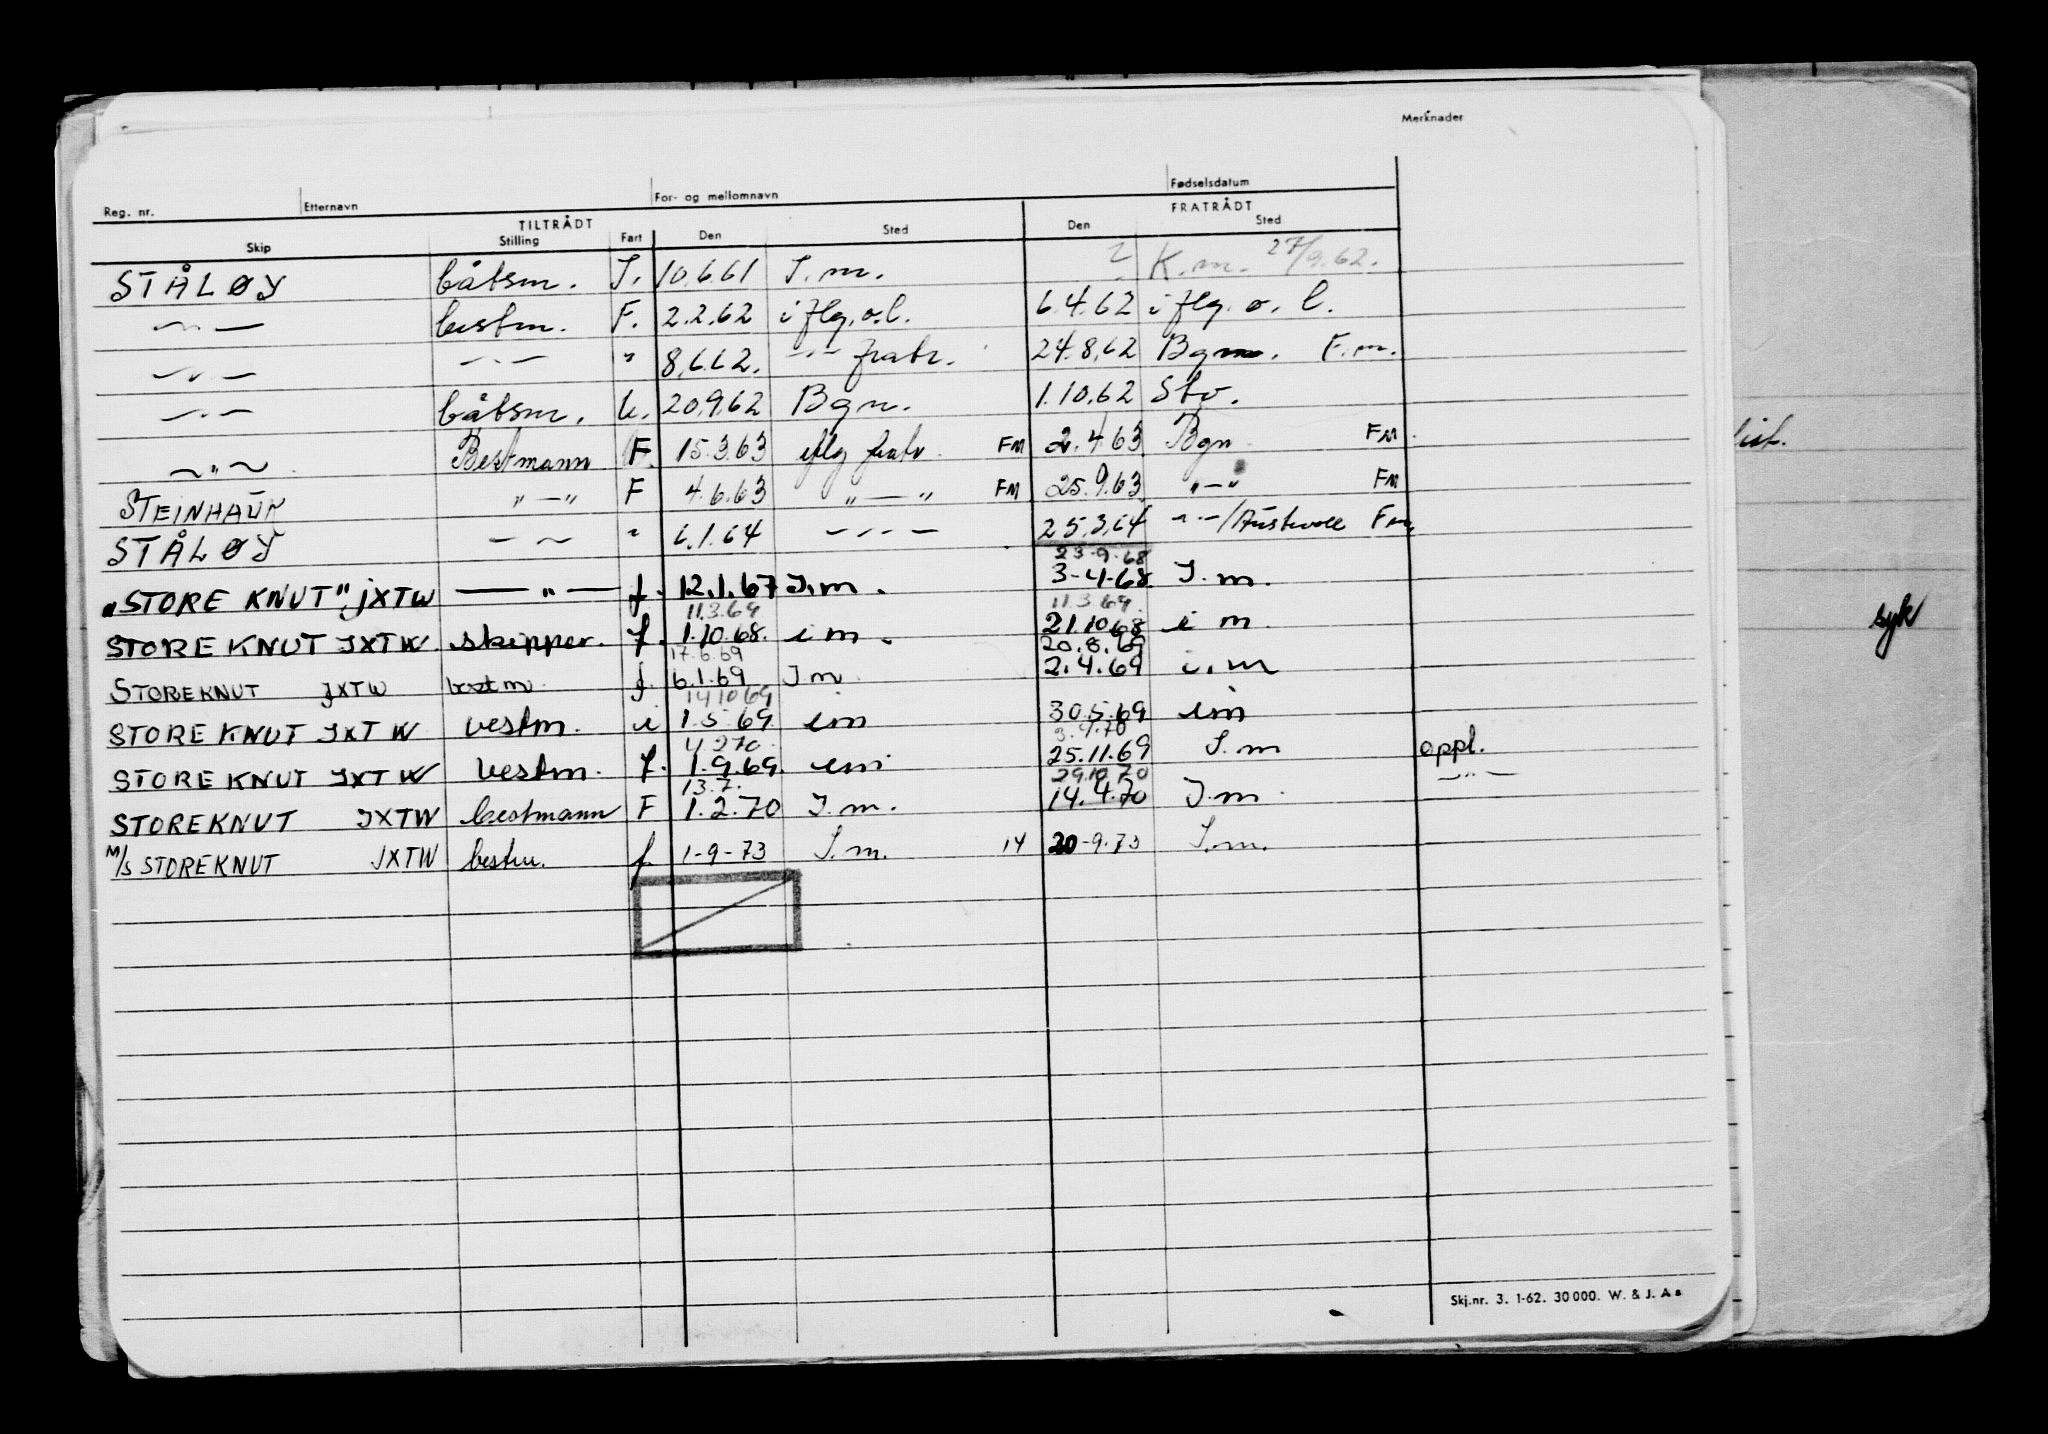 Merknader
Reg. nr. Etternavn For- og mellomnavn Fødselsdatum
TILTRÅDT FRATRÅDT
Skip Stilling Fart Den Sted Den Sted
STÅLØY båtsm. I. 10.6.61 I.m. ? K.m. 27/9.62.
— " — bestm. F. 2.2.62 iflg.o.l. 6.4.62 iflg.o.l.
— " — — " — " 8.6.62. — " — fratr. 24.8.62 Bgn. F.m.
— " — båtsm. U. 20.9.62 Bgn. 1.10.62 Stv.
— " — Bestmann F. 15.3.63 iflg fratr. FM 2.4.63 Bgn FM
STEINHAUK " — " F 4.6.63 " — " FM 25.9.63 " — " FM
STÅLØY — " — " 6.1.64 — " — 25.3.64 — " — /Austevoll Fm.
23-9-68
"STORE KNUT", JXTW — " — f. 12.1.67 I.m. 3-4-68 I.m.
11.3.69 11.3.69.
STORE KNUT JXTW. skipper. f. 1.10.68. i m. 21.10.68 i m.
17.6.69 20.8.69
STOREKNUT JXTW bestm. f. 6.1.69 I m 2.4.69 i.m
14.10.69
STORE KNUT JXTW bestm. i 1.5.69. im 30.5.69 im
4.2.70. 3.4.70
STORE KNUT JXTW bestm. f. 1.9.69. im 25.11.69 I.m oppl.
13.7. 29.10.70 — " —
STOREKNUT JXTW bestmann F 1.2.70 I.m. 14.4.70 I.m.
M/S STOREKNUT JXTW bestm. f. 1-9-73 I.m. 14 20-9.73 I.m.
syk
Skj.nr. 3. 1-62. 30000. W. & J. As